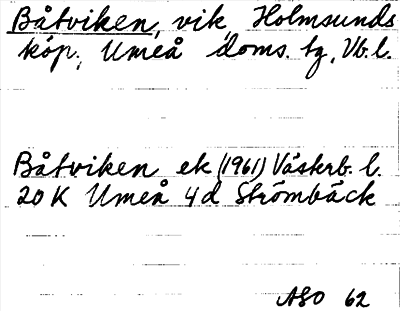 Båtviken, vik Holmsunds
köp., Umeå doms. tg, Vb. l.
Båtviken ek (1961) Västerb. l.
20 K Umeå 4d Strömbäck
ASO 62